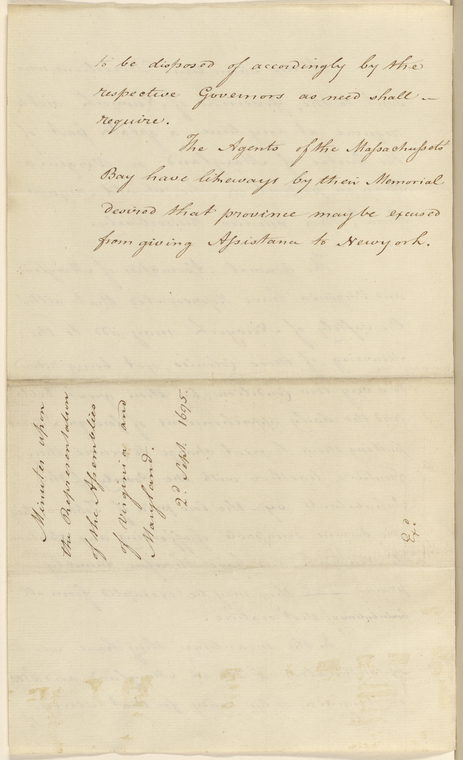 to be disposed of accordingly by the
respective Governors as need shall –
require.
The Agents of the Massachussets
Bay have likeways by their Memorial
desired that province may be excused
from giving Assistance to Newyork.
Minutes upon
the Representation
of the Assemblies
of Virginia and
Maryland.
2.d Sept. 1695.
Ex.d